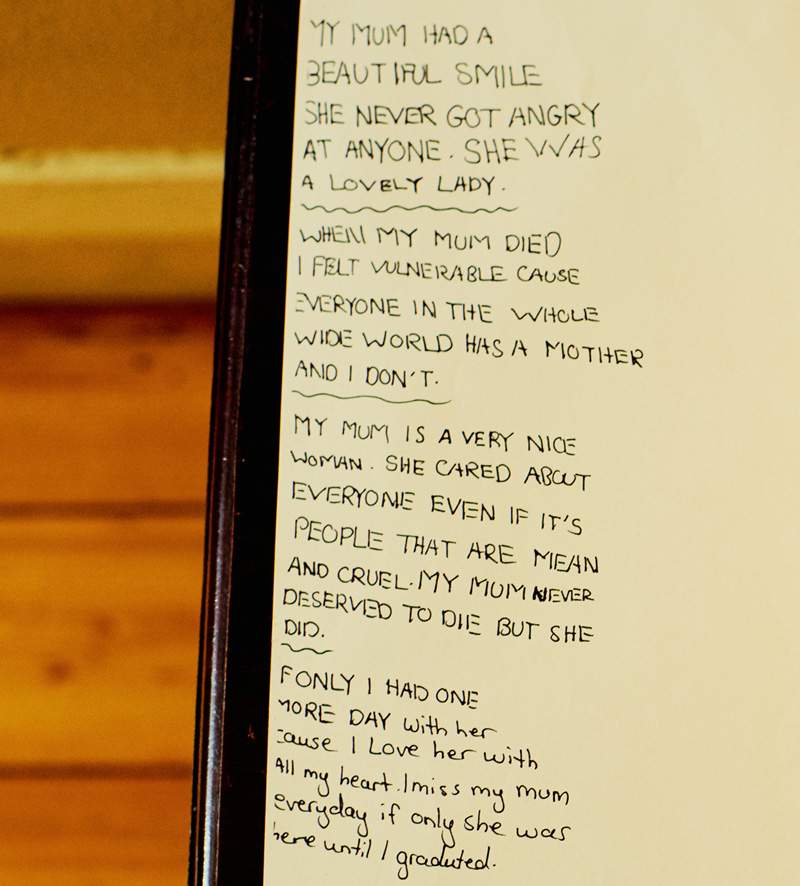 MY MUM HAD A
BEAUTIFUL SMILE
SHE NEVER GOT ANGRY
AT ANYONE. SHE WAS
A LOVELY LADY.
WHEN MY MUM DIED
I FELT VULNERABLE CAUSE
EVERYONE IN THE WHOLE
WIDE WORLD HAS A MOTHER
AND I DON'T.
MY MUM IS A VERY NICE
WOMAN. SHE CARED ABOUT
EVERYONE EVEN IF IT'S
PEOPLE THAT ARE MEAN
AND CRUEL. MY MUM NEVER
DESERVED TO DIE BUT SHE
DID.
F ONLY I HAD ONE
MORE DAY with her
cause I Love her with
All my heart. I miss my mum
everyday if only she was
here until I graduted.